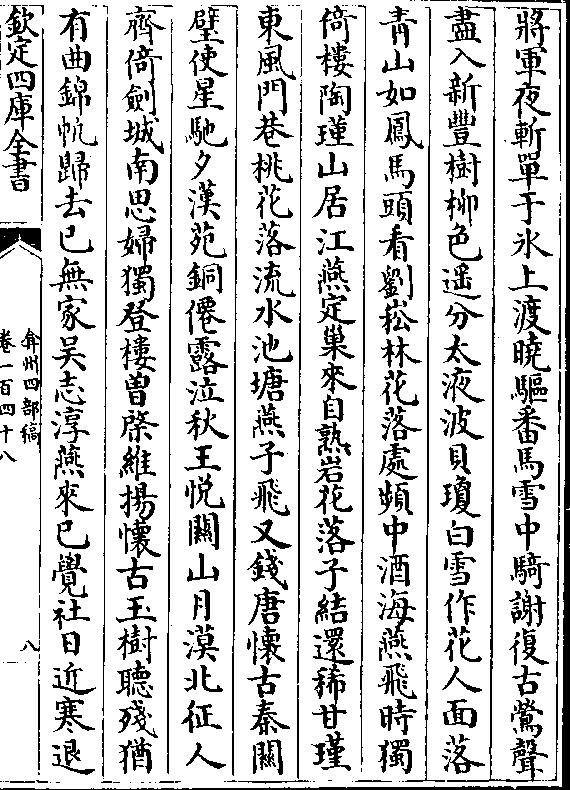 將軍夜斬單于氷上渡曉驅番馬雪中騎謝復古鶯聲
盡入新豐樹柳色遥分太液波貝瓊白雪作花人面落
青山如鳳馬頭看劉崧林花落處頻中酒海燕飛時獨
倚樓陶瑾山居江燕定巢來自熟岩花落子結還稀甘瑾
東風門巷桃花落流水池塘燕子飛又錢唐懷古秦關
璧使星馳夕漢苑銅僊露泣秋王悦關山月漠北征人
齊倚劍城南思婦獨登樓曽棨維揚懷古玉樹聽殘猶
有曲錦帆歸去已無家吴志淳燕來已覺社日近寒退
欽定四庫全書
弇州四部稿
卷一百四十八
八